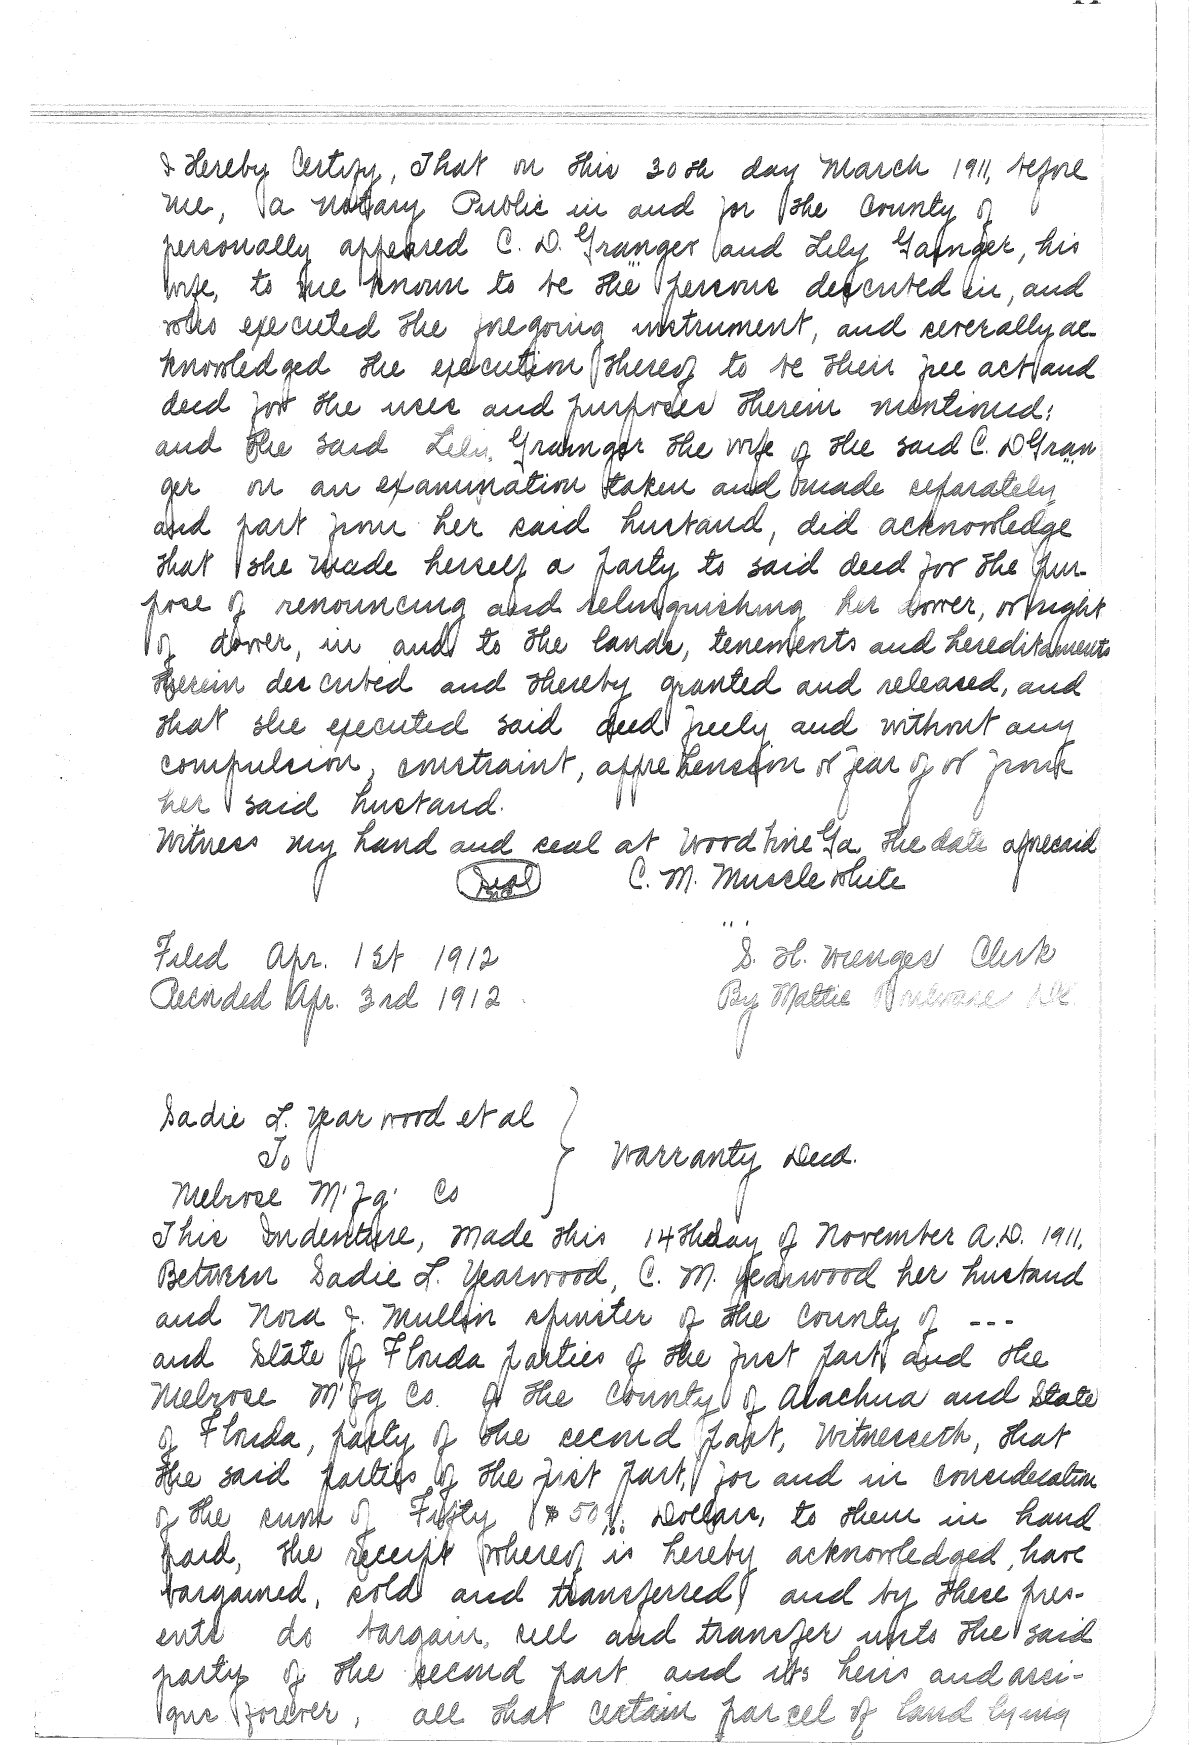 I Hereby Certify, That on this 30th day March 1911, before
me, a notary Public in and for the County of
personally appeared C. D. Granger and Lily Gainger, his
wife, to me known to be the persons described in, and
who executed the foregoing instrument, and severally ac-
knowledged the execution thereof to be their free act and
deed for the uses and purposes therein mentioned;
and the said Lily Grainger the wife of the said C. D Gran
ger on an examination taken and made separately
and part from her said husband, did acknowledge
that she made herself a party to said deed for the pur-
pose of renouncing and relinquishing her dower, or right
of dower, in and to the lands, tenements and hereditaments
therein described and thereby granted and released, and
that she executed said deed freely and without any
compulsion, constraint, apprehension or fear of or from
her said husband.
Witness my hand and seal at Woodbine Ga the date aforesaid
Seal C. M. Musclewhite
Filed Apr. 1st 1912 S. H. Wienges Clerk
Recorded Apr. 3rd 1912 By Mattie D.C.
Sadie L. Yearwood et al
To Warranty Deed.
Melrose M'f'g' Co
This Indenture, Made this 14th day of November A.D. 1911,
Between Sadie L. Yearwood, C. M. Yearwood her husband
and Nora J. Mullin spinster of the County of ---
and State of Florida parties of the first part, and the
Melrose M'f'g Co. of the County of Alachua and State
of Florida, party of the second part, Witnesseth, that
the said parties of the first part, for and in consideration
of the sum of Fifty $50 Dollars, to them in hand
paid, the receipt whereof is hereby acknowledged, have
bargained, sold and transferred, and by these pres-
ents do bargain, sell and transfer unto the said
party of the second part and its heirs and assi-
gns forever, all that certain parcel of land lying